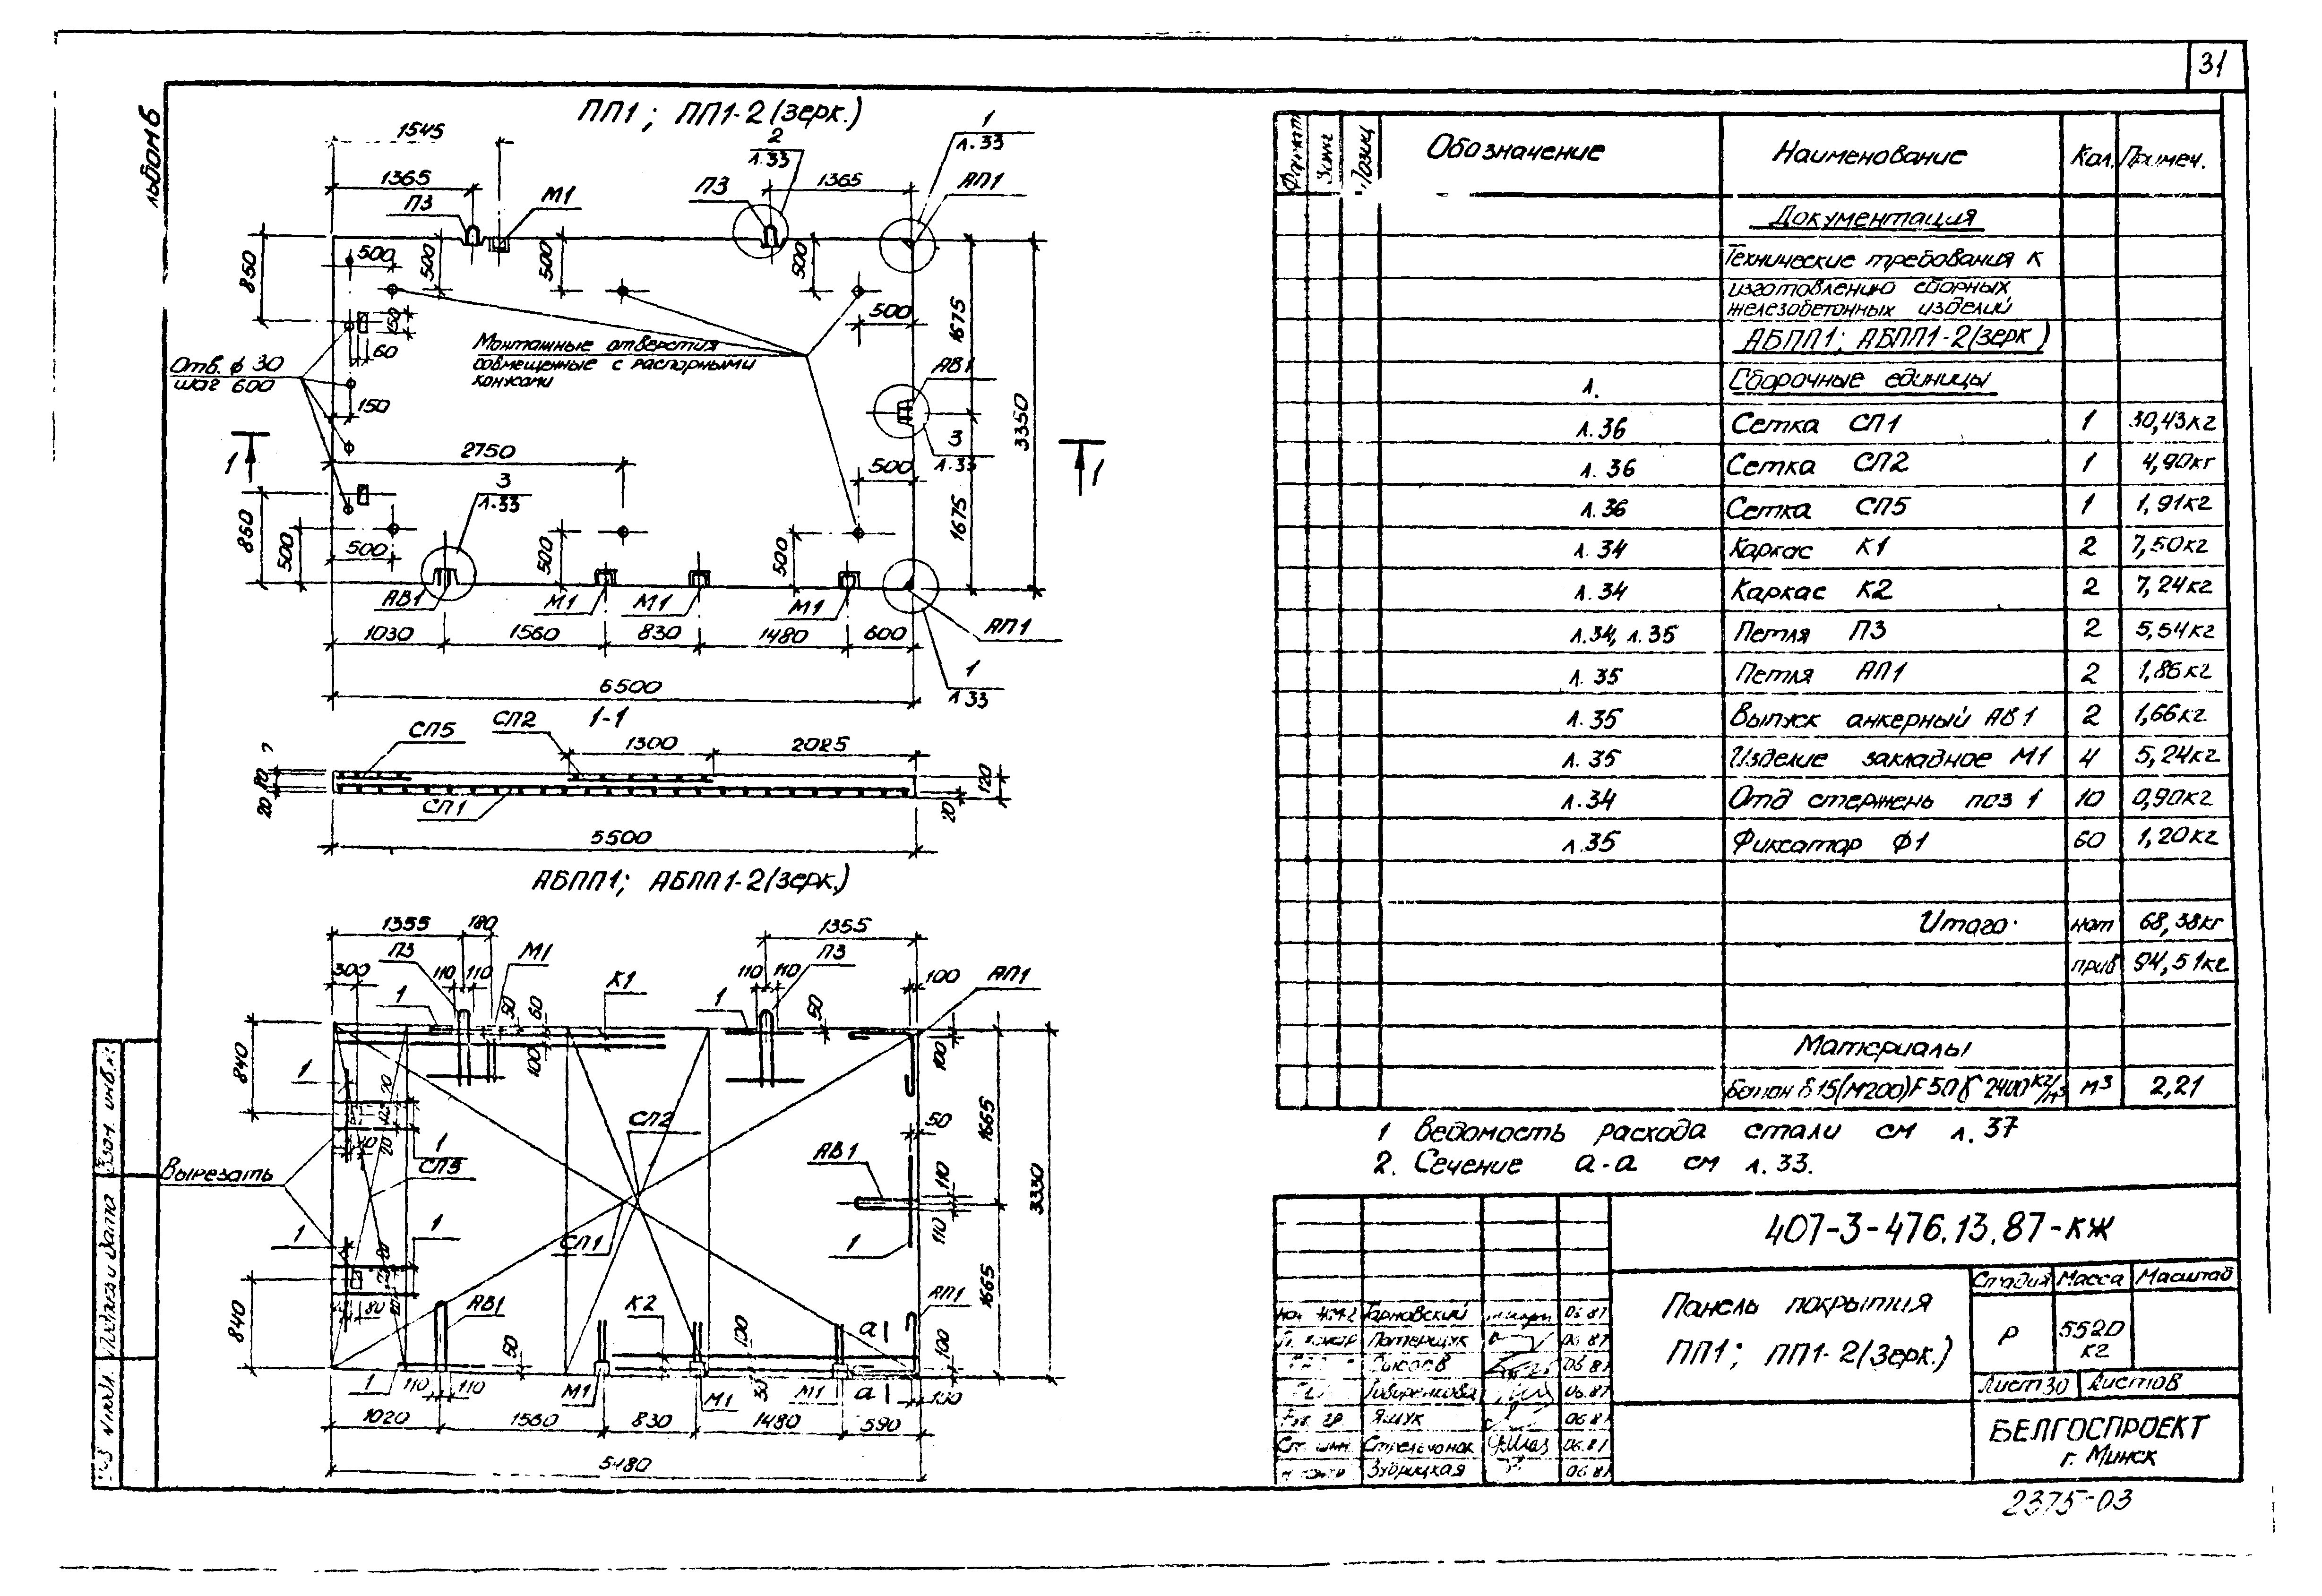 31
льбом 6
ПП1; ПП1-2 (зерк.)
1545
1365
П3
М1
П3
2
л.33
1365
1
л.33
АП1
850
500
500
500
500
500
150
60
1675
3350
Монтажные отверстия
совмещенные с распорными
конусами
Отв. ϕ 30
шаг 600
150
АВ1
3
л.33
1
1
2750
3
л.33
500
850
500
500
500
500
1675
АВ1
М1
М1
М1
АП1
1030
1560
830
1480
600
1
л.33
6500
1-1
СП5
СП2
1300
2025
20
20
120
СП1
5500
АБПП1; АБПП1-2 (зерк.)
1355
180
1355
П3
М1
П3
300
110
110
К1
110
110
100
АП1
1
50
60
1
50
840
100
100
1
СП2
1665
50
1
СП5
АВ1
110
3330
Вырезать
110
1
1
СП1
1
80
840
АВ1
К2
АП1
1665
50
100
а
100
1
110
110
М1
30
М1
М1
а
100
1020
1560
830
1480
590
5480
Формат
Зона
Позиц
Обозначение
Наименование
Кол.
Примеч.
Документация
Технические требования к
изготовлению сборных
железобетонных изделий
АБПП1; АБПП1-2 (зерк)
л.
Сборочные единицы
л.36 Сетка СП1 1 30,43кг
л.36 Сетка СП2 1 4,90кг
л.36 Сетка СП5 1 1,91кг
л.34 Каркас К1 2 7,50кг
л.34 Каркас К2 2 7,24кг
л.34, л.35 Петля П3 2 5,54кг
л.35 Петля АП1 2 1,86кг
л.35 Выпуск анкерный АВ1 2 1,66кг
л.35 Изделие закладное М1 4 5,24кг
л.34 Отд стержень поз 1 10 0,90кг
л.35 Фиксатор Ф1 60 1,20кг
Итого: нат 68,38кг
прив 94,51кг
Материалы
Бетон В15(М200)F50 γ 2400кг/м3 м3 2,21
1 Ведомость расхода стали см л.37
2. Сечение а-а см л.33.
407-3-476.13.87-КЖ
Панель покрытия
ПП1; ПП1-2 (зерк.)
Стадия Масса Масштаб
Р
5520
кг
Лист 30 Листов
БЕЛГОСПРОЕКТ
г. Минск
Тарновский 06.87
06.87
06.87
06.87
Рук. гр Ящук 06.87
Ст. инж 06.87
Зубрицкая 06.87
Взам. инв.
Подпись и дата
2375-03